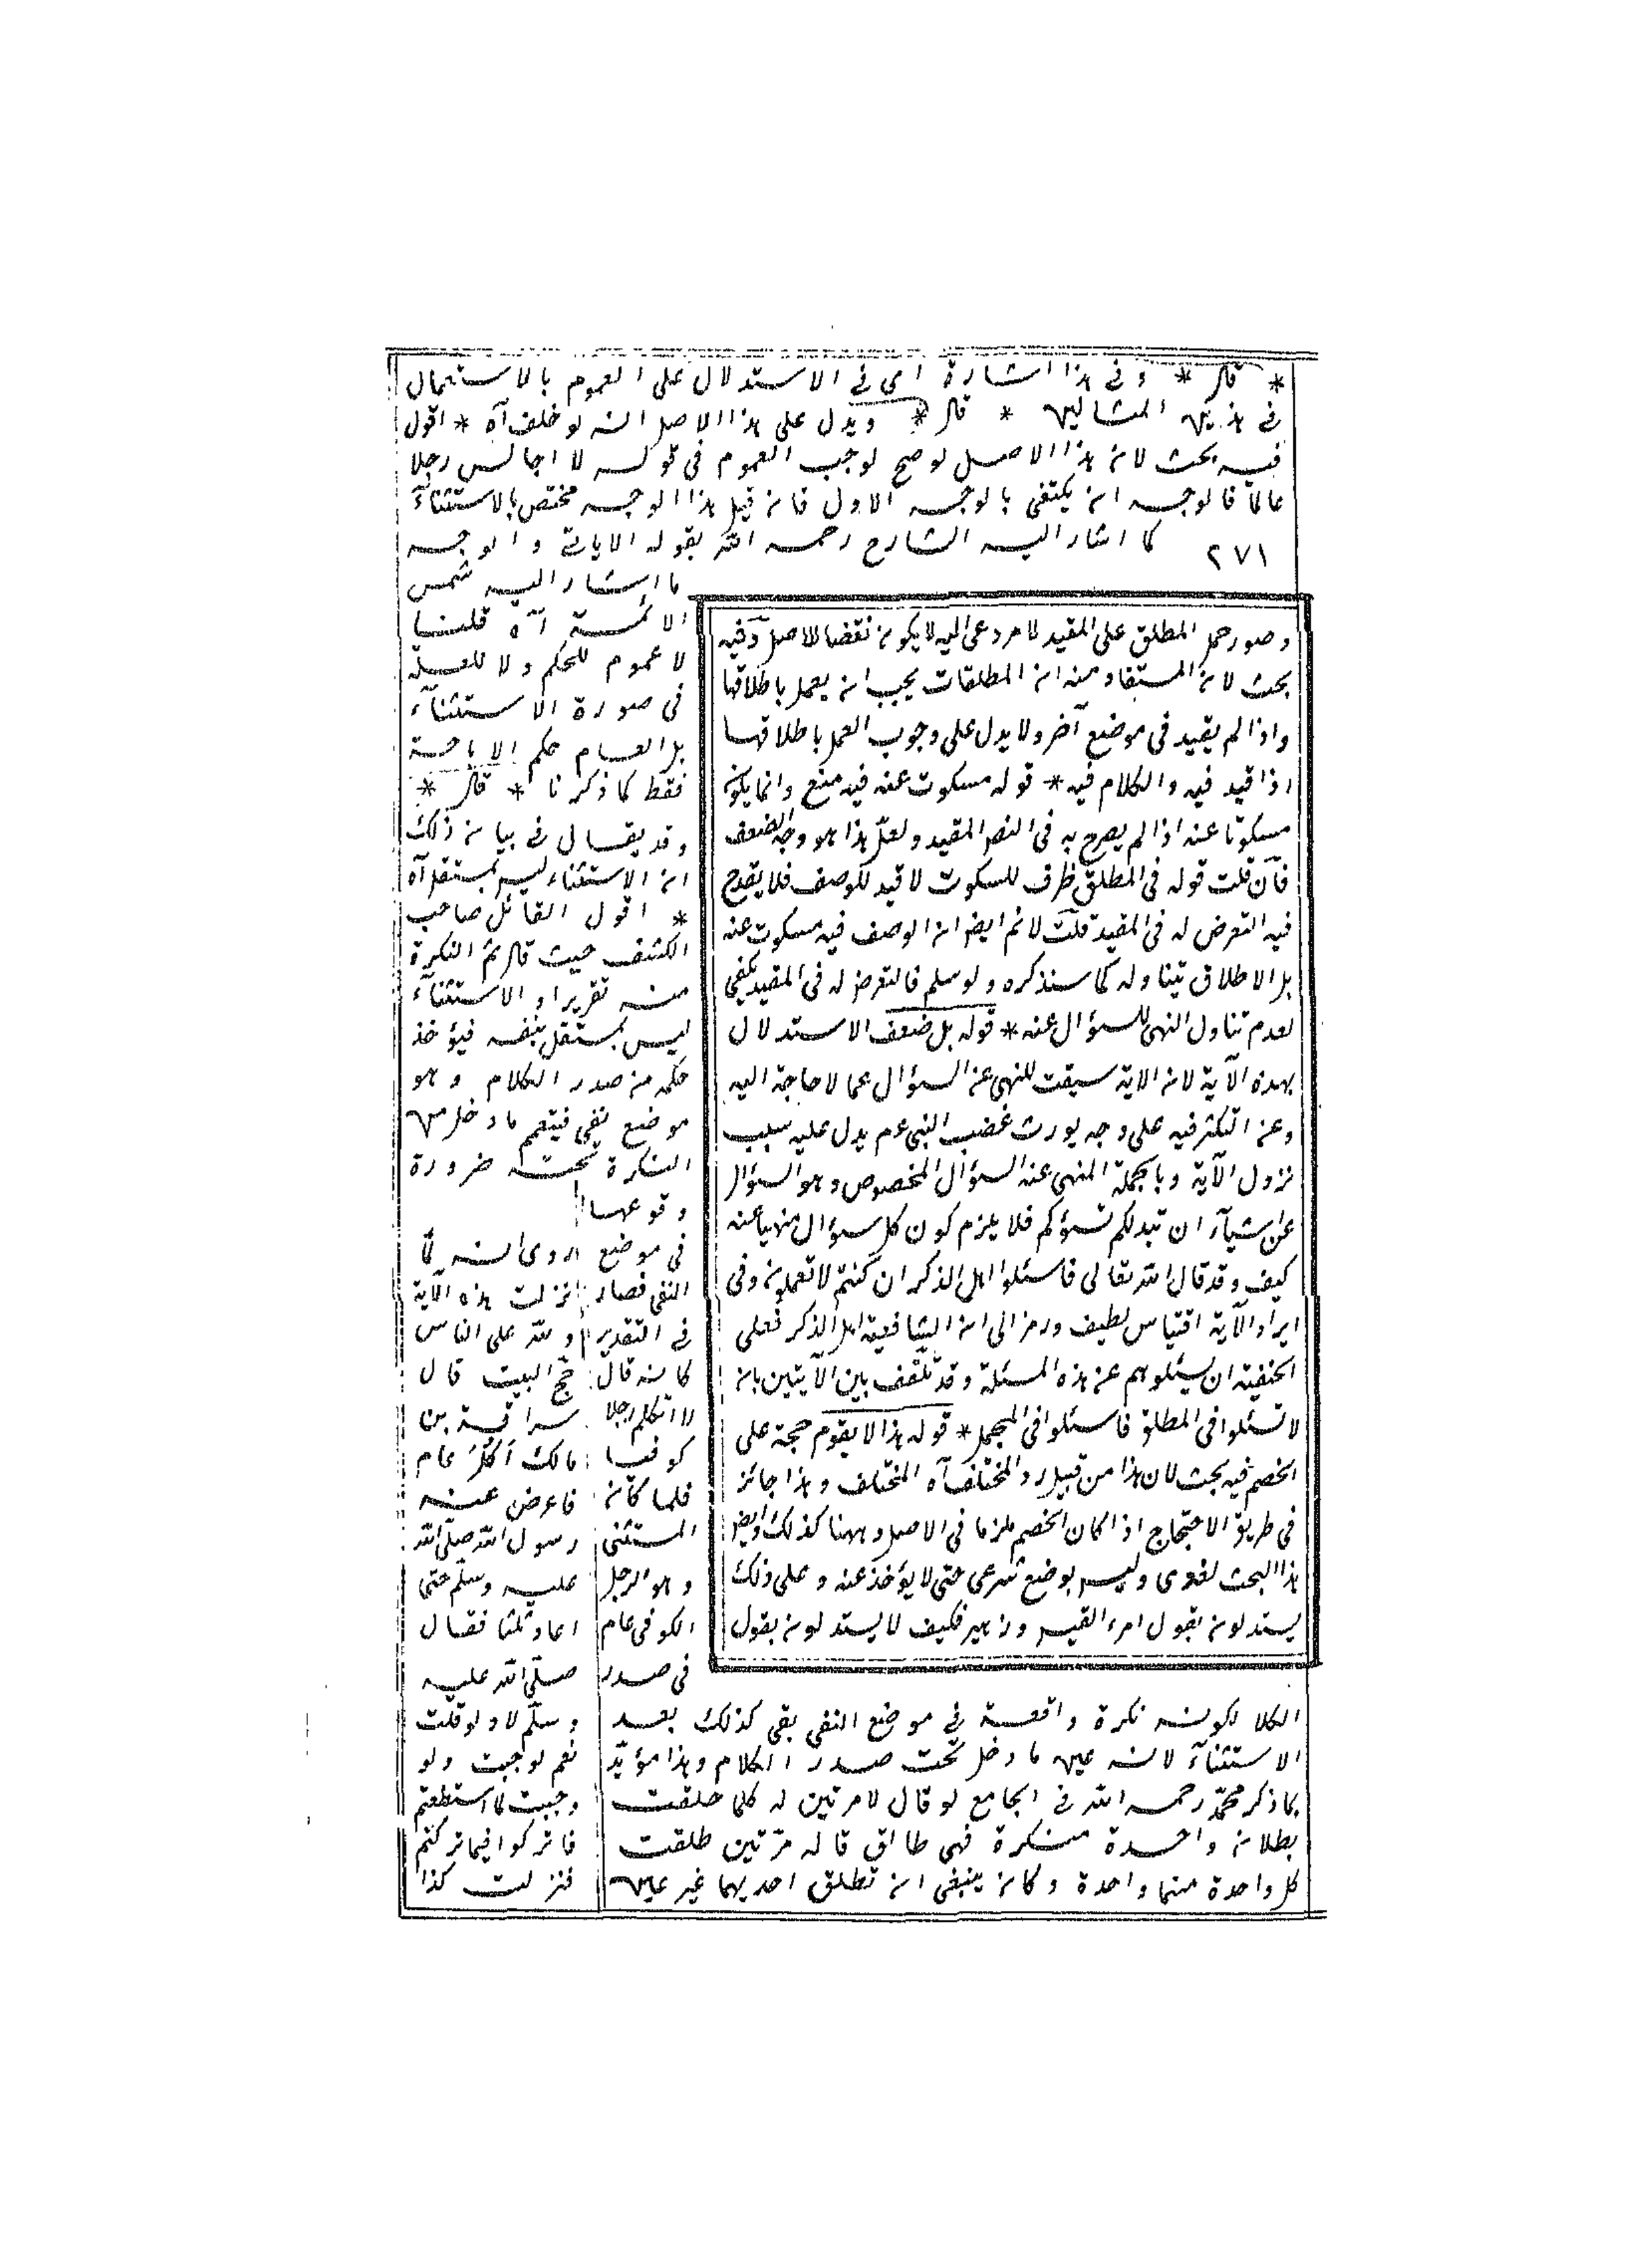 * قال * وفى هذا اشارة اى فى الاستدلال على العموم بالاستعمال
فى هذين المثالين * قال * ويدل على هذا الاصل انه لو خلف آه * اقول
فيه بحث لان هذا الاصل لوصح لوجب العموم فى قوله لا اجالس رجلا
عالما فالوجه ان يكتفى بالوجه الاول فان قيل هذا الوجه مختص بالاستثنآء
كما اشار اليه الشارح رحمه الله بقوله الاياتى والوجه
٢٧١
ما اشار اليه شمس
الائمة آه قلنا
لا عموم للحكم ولا للعلة
فى صورة الاستثنآء
بل العام حكم الاباحة
فقط كما ذكرنا * قال *
وقد يقال فى بيان ذلك
ان الاستثناء ليس بمستقل آه
* اقول القائل صاحب
الكشف حيث قال ثم النكرة
منه تقريرا و الاستثنآء
ليس بمستقل بنفسه فيؤخذ
حكمه من صدر الكلام وهو
موضع نفى فيتعمم ما دخل من
النكرة تحته ضرورة
وقوعها
فى موضع
النفى فصار
فى التقدير
كانه قال
لا اتكلم رجلا
كوفيا
فلما كان
المستثنى
وهو الرجل
الكوفى عام
فى صدر
الكلا لكونه نكرة واقعة فى موضع النفى بقى كذلك بعد
الاستثنآء لانه عين ما دخل تحت صدر الكلام وهذا مؤيد
بما ذكر محمد رحمه الله فى الجامع لو قال لامرتين له كلما حلقت
بطلان واحدة منكرة فهى طالق قاله مرتين طلقت
كل واحدة منهما واحدة وكان ينبغى ان تطلق احديهما غير عين
وصور حمل المطلق على المقيد لامر دعى اليه لا يكون نقضا للاصل وفيه
بحث لان المستفاد منه ان المطلقات يجب ان يعمل باطلاقها
واذا لم يقيد فى موضع آخر ولا يدل على وجوب العمل باطلاقها
اذا قيد فيه والكلام فيه * قوله مسكوت عنه فيه منع وانما يكون
مسكوتا عنه اذا لم يصرح به فى النص المقيد ولعل هذا هو وجه الضعف
فان قلت قوله فى المطلق ظرف للسكوت لا قيد للوصف فلا يقدح
فيه التعرض له فى المقيد قلت لانم ايضا ان الوصف فيه مسكوت عنه
بل الاطلاق يتناوله كما سنذكره ولو سلم فالتعرض له فى المقيد يكفى
لعدم تناول النهى للسؤال عنه * قوله بل ضعف الاستدلال
بهذه الآية لان الاية سيقت للنهى عن السؤال عما لا حاجة اليه
وعن التكثر فيه على وجه يورث غضب النبى عم يدل عليه سبب
نزول الآية وبالجملة المنهى عنه السؤال المخصوص وهو السؤال
عن اشيآء ان تبدلكم تسؤكم فلا يلزم كون كل سؤال منهيا عنه
كيف وقد قال الله تعالى فاسئلوا اهل الذكر ان كنتم لا تعلمون وفى
ايراد الآية اقتباس لطيف ورمز الى ان الشافعية اهل الذكر فعلى
الحنفية ان يسئلوهم عن هذه المسئلة وقد تلقف بين الآيتين بان
لا تسئلوا فى المطلق فاسئلوا فى المجمل * قوله هذا لا يقوم حجة على
الخصم فيه بحث لان هذا من قبيل رد المختلف آه المختلف وهذا جائز
فى طريق الاحتجاج اذا كان الخصم ملزما فى الاصل وههنا كذلك وايضا
هذا البحث لغوى وليس بوضع شرعى حتى لا يؤخذ عنه وعلى ذلك
يستدلون بقول امرء القيس وزهير فكيف لا يستدلون بقول
روى انه لما
انزلت هذه الآية
ولله على الناس
حج البيت قال
سراقة بن
مالك أكلّ عام
فاعرض عنه
رسول الله صلى الله
عليه وسلم حتى
اعاد ثلثا فقال
صلى الله عليه
وسلم لا ولو قلت
نعم لوجبت ولو
وجبت لما استطعتم
فاتركوا فيما تركتم
فنزلت كذا